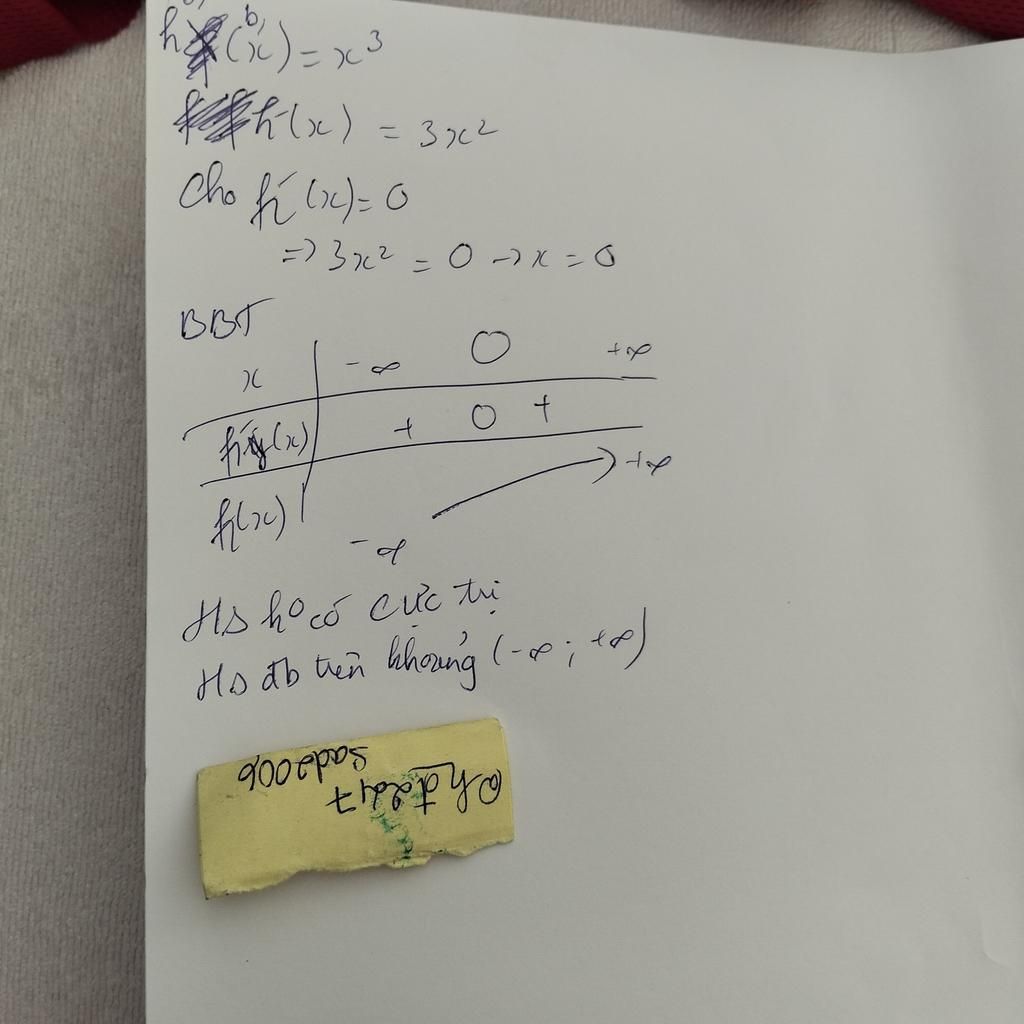 b,
h(x) = x³
h'(x) = 3x²
Cho h'(x) = 0
=> 3x² = 0 -> x = 0
BBT
x -∞ 0 +∞
h'(x) + 0 +
h(x) -∞ +∞
Hs ko có cực trị
Hs đb trên khoảng (-∞; +∞)
Sad2006